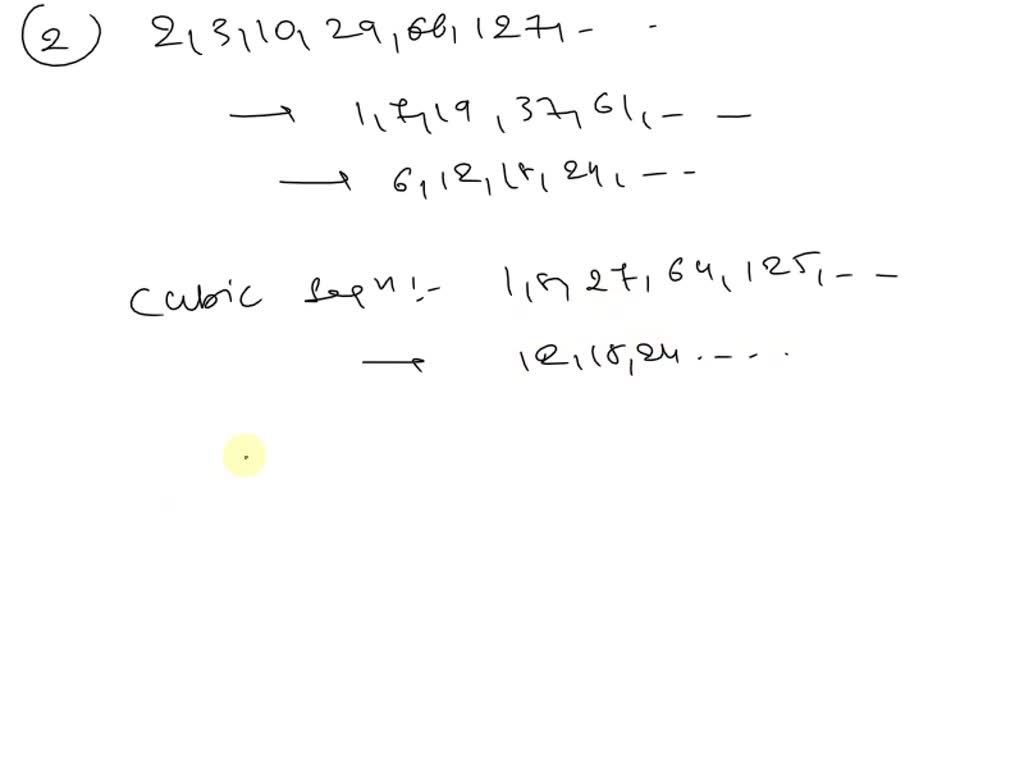 (2) 2,3,10,29,66,127,- -
→ 1,7,19,37,61,- -
→ 6,12,18,24,---
Cubic Seqn:- 1,8,27,64,125,- -
→ 12,18,24.--- .